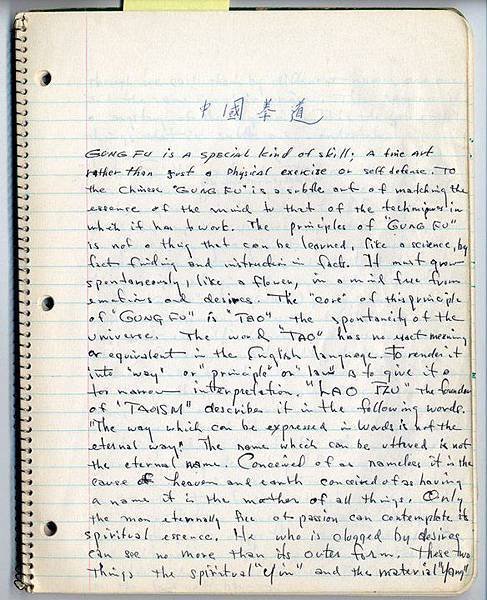 中國拳道
GUNG FU is a special kind of skill; A fine art
rather than just a physical exercise or self defense. To
the Chinese "GUNG FU" is a subtle art of matching the
essence of the mind to that of the techniques in
which it has to work. The principles of "GUNG FU"
is not a thing that can be learned, like a science, by
fact finding and instruction in facts. It must grow
spontaneously, like a flower, in a mind free from
emotions and desires. The "core" of this principle
of "GUNG FU" is "TAO" the spontaneity of the
universe. The word "TAO" has no exact meaning
or equivalent in the English language. To render it
into "way" or "principle" or "law" is to give it a
too narrow interpretation. "LAO TZU" the founder
of "TAOISM" describes it in the following words.
"The way which can be expressed in words is not the
eternal way; The name which can be uttered is not
the eternal name. Conceived of as nameless it is the
cause of heaven and earth conceived of as having
a name it is the mother of all things. Only
the man eternally free of passion can contemplate its
spiritual essence. He who is clogged by desires
can see no more than its outer form. These two
things the spiritual "Yin" and the material "Yang"